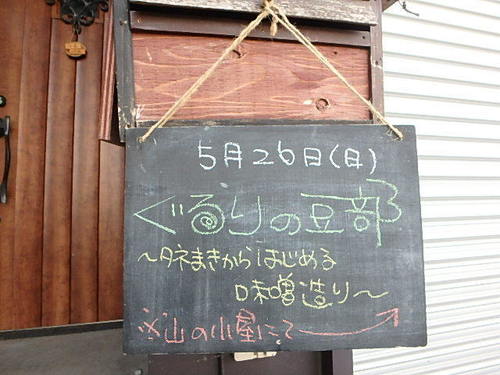 5月26日(日)
ぐるりの豆部
〜タネまきからはじめる
味噌造り〜
※山の小屋にて